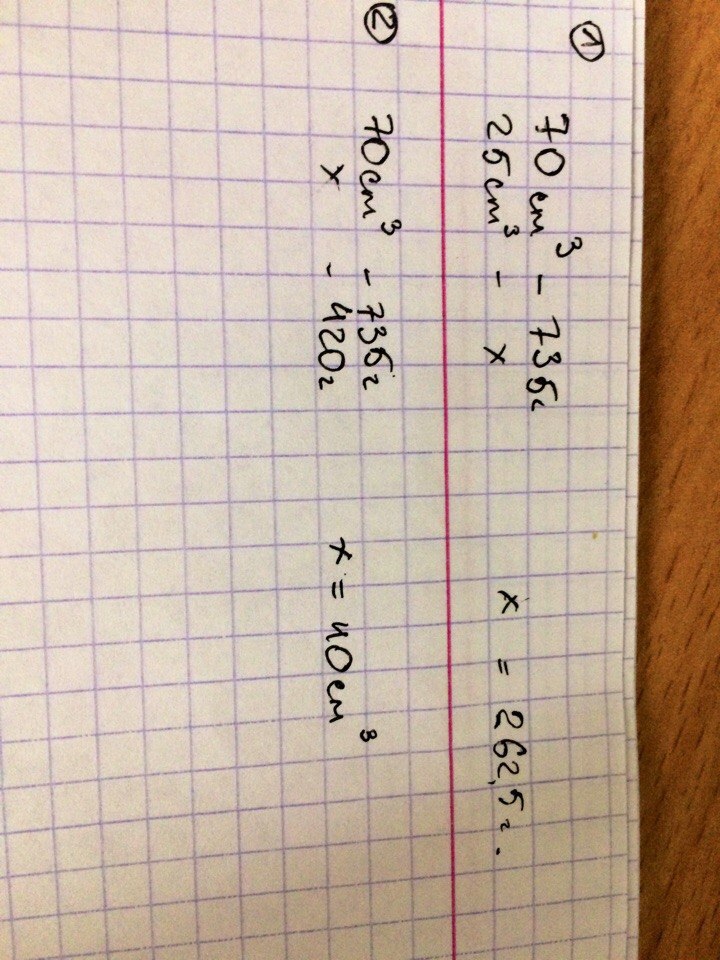 ①
70 см³ - 735г
25см³ - x x = 262,5г.
②
70см³ - 735г
x - 420г x = 40см³